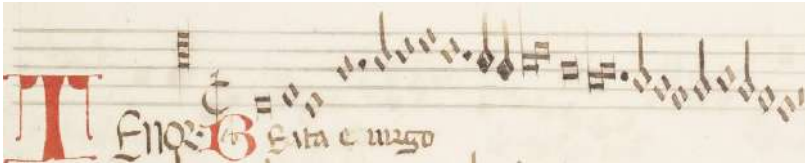 TEnor BEata es uirgo